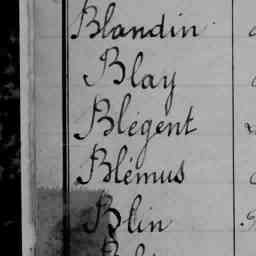 Blandin
Blay
Blégent
Blémus
Blin